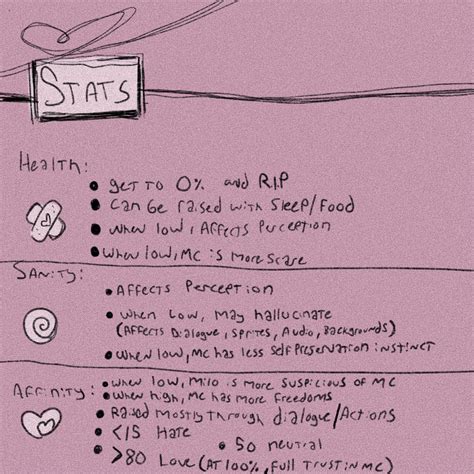 STATS
Health:
• get to 0% and R.I.P
• can be raised with sleep/Food
• when low, Affects Perception
• when low, MC is more scare
Sanity:
• Affects Perception
• when low, may hallucinate
(Affects Dialogue, Sprites, Audio, Backgrounds)
• when low, MC has less self preservation instinct
Affinity:
• when low, Milo is more suspicious of MC
• when high, MC has more freedoms
• Raised mostly through dialogue/Actions
• <15 Hate
• 50 neutral
• >80 Love (AT 100%, Full trust in MC)